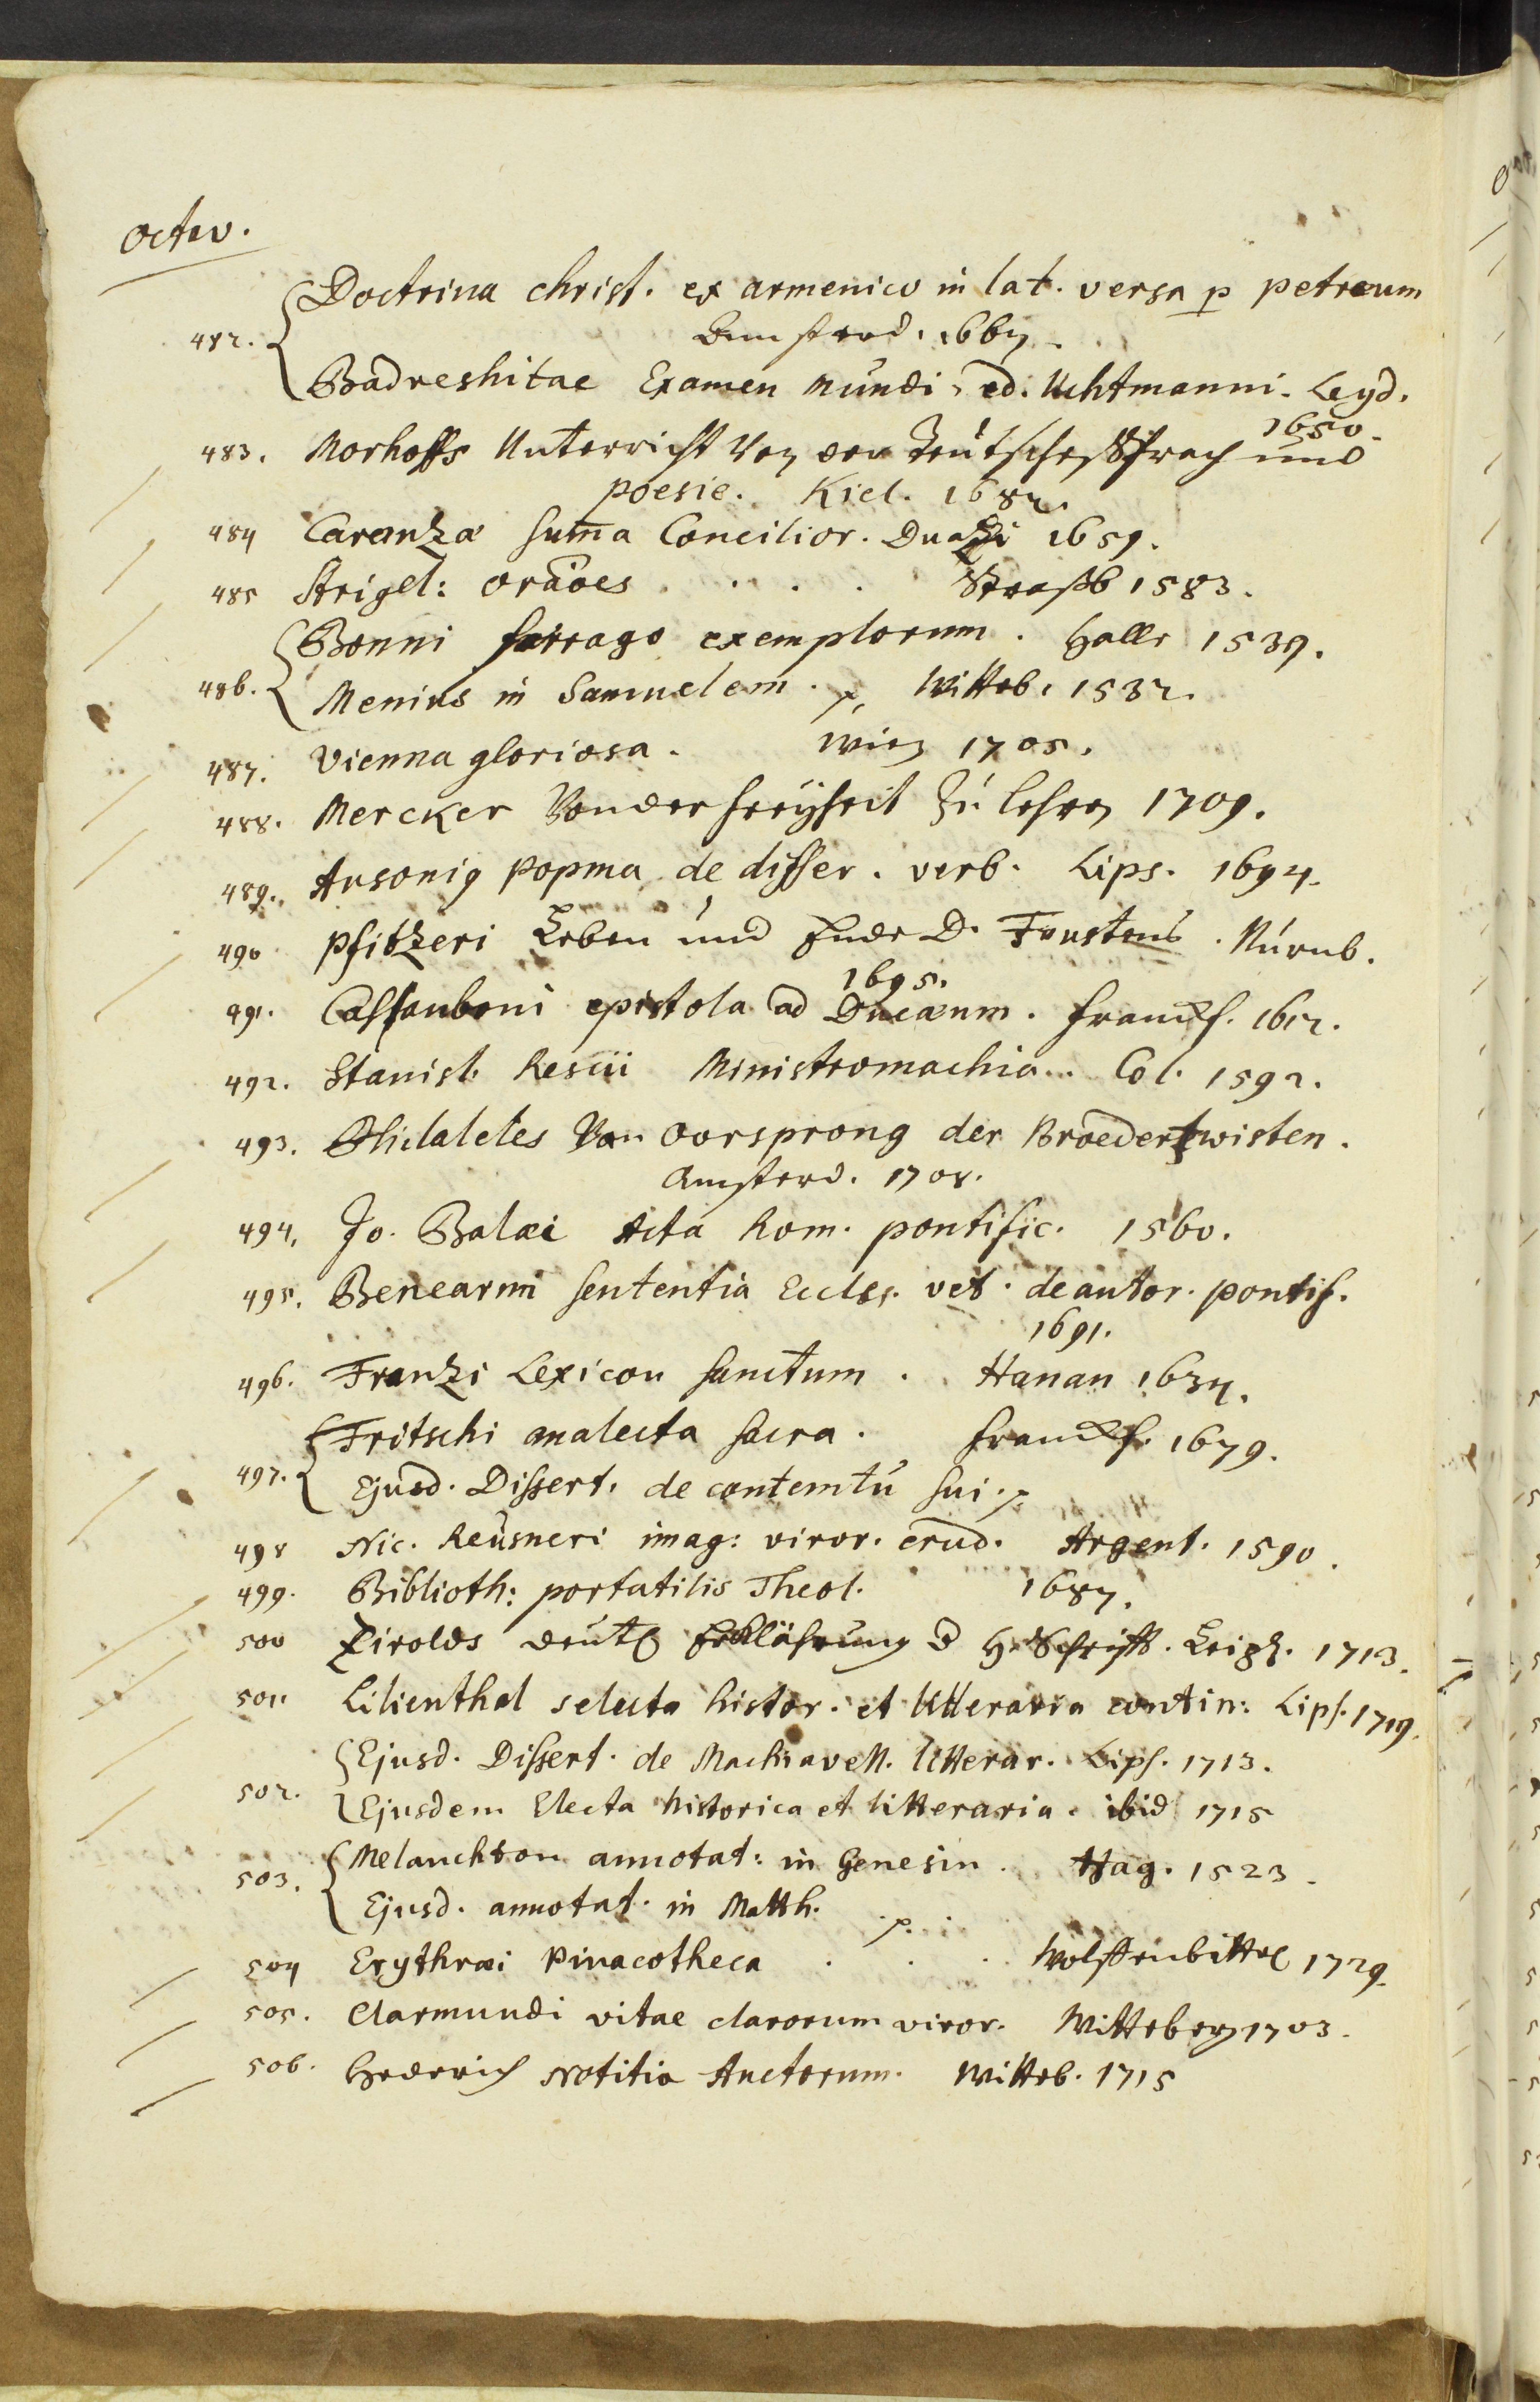 octav.
Doctrina christ. ex armenico in lat. versa p petraeum
482. Amsterd. 1667
Badreshitae Examen Mundi, ed. Uchtmanni. Leyd.
1650.
483. Morhoffs Unterricht von der Teutschen Sprach und
poesie. Kiel. 1682.
484 Caranzae suma Concilior. Duaci 1659.
485 Strigel: oraoes . . . . Strasb 1583.
Bonni farrago exemplorum. Halle 1539.
486. Menius in Samuelem. p. Witteb. 1532.
487. Vienna gloriosa. Wien 1705.
488. Mercker Von der freyheit zu lehren 1709.
489. Ausonig Popma de differ. verb. Lips. 1694.
490 Pfitzeri Leben und Ende D. Faustens. Nürnb.
1695.
491. Cassauboni epistola ad Ducaeum. Franckf. 1612.
492. Stanisl. Rescii Ministromachia. Col. 1592.
493. Philaletes Van Oorsprong der Broedertwisten.
Amsterd. 1708.
494. Jo. Balaei Acta Rom. pontific. 1560.
495. Benearmi sententia Eccles. vet. de autor. pontif.
1691.
496. Franzi Lexicon sanctum. Hanau 1634.
Fritschi analecta sacra. Franckf. 1679.
497. Ejusd. Dissert. de contemtu sui. p.
498 Nic. Reusneri imag: viror. erud. Argent. 1590.
499. Biblioth: portatilis Theol. 1687.
500 Zirolds deutl Erklährung d H. Schrifft. Leipz. 1713.
501 Lilienthal selecta histor. et litteraria contin: Lips. 1719.
Ejusd. Dissert. de Machiavell. litterar. Lips. 1713.
502. Ejusdem Electa historica et litteraria. ibid 1715
503. Melanchton annotat: in Genesin. Hag. 1523.
Ejusd. annotat. in Matth. p.
504 Erythraei Pinacotheca . . . Wolffenbittel 1729.
505. Clarmundi vitae clarorum viror. Witteberg 1703.
506. Hederich Notitia Auctorum. Witteb. 1715